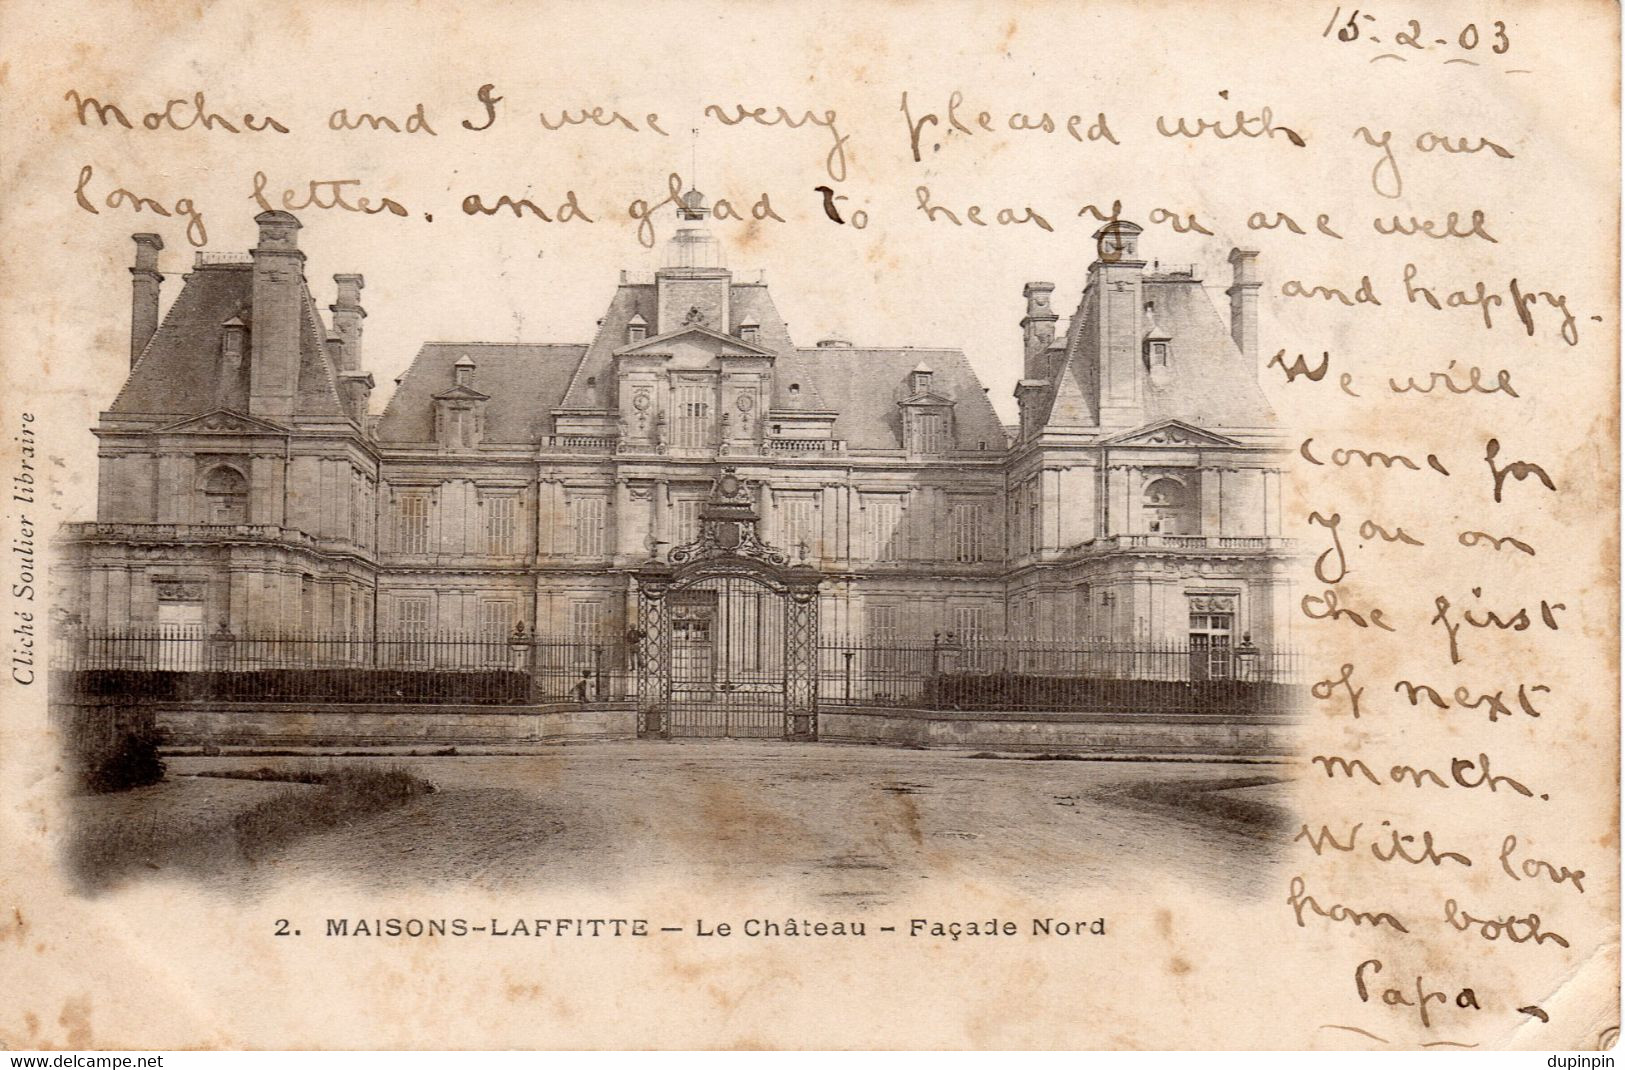 15-2-03
Mother and I were very pleased with your
long letter. and glad to hear you are well
and happy.
We will
come for
you on
the first
of next
month.
With love
from both
Papa
Cliché Soulier libraire
2. MAISONS-LAFFITTE — Le Château — Façade Nord
www.delcampe.net
dupinpin